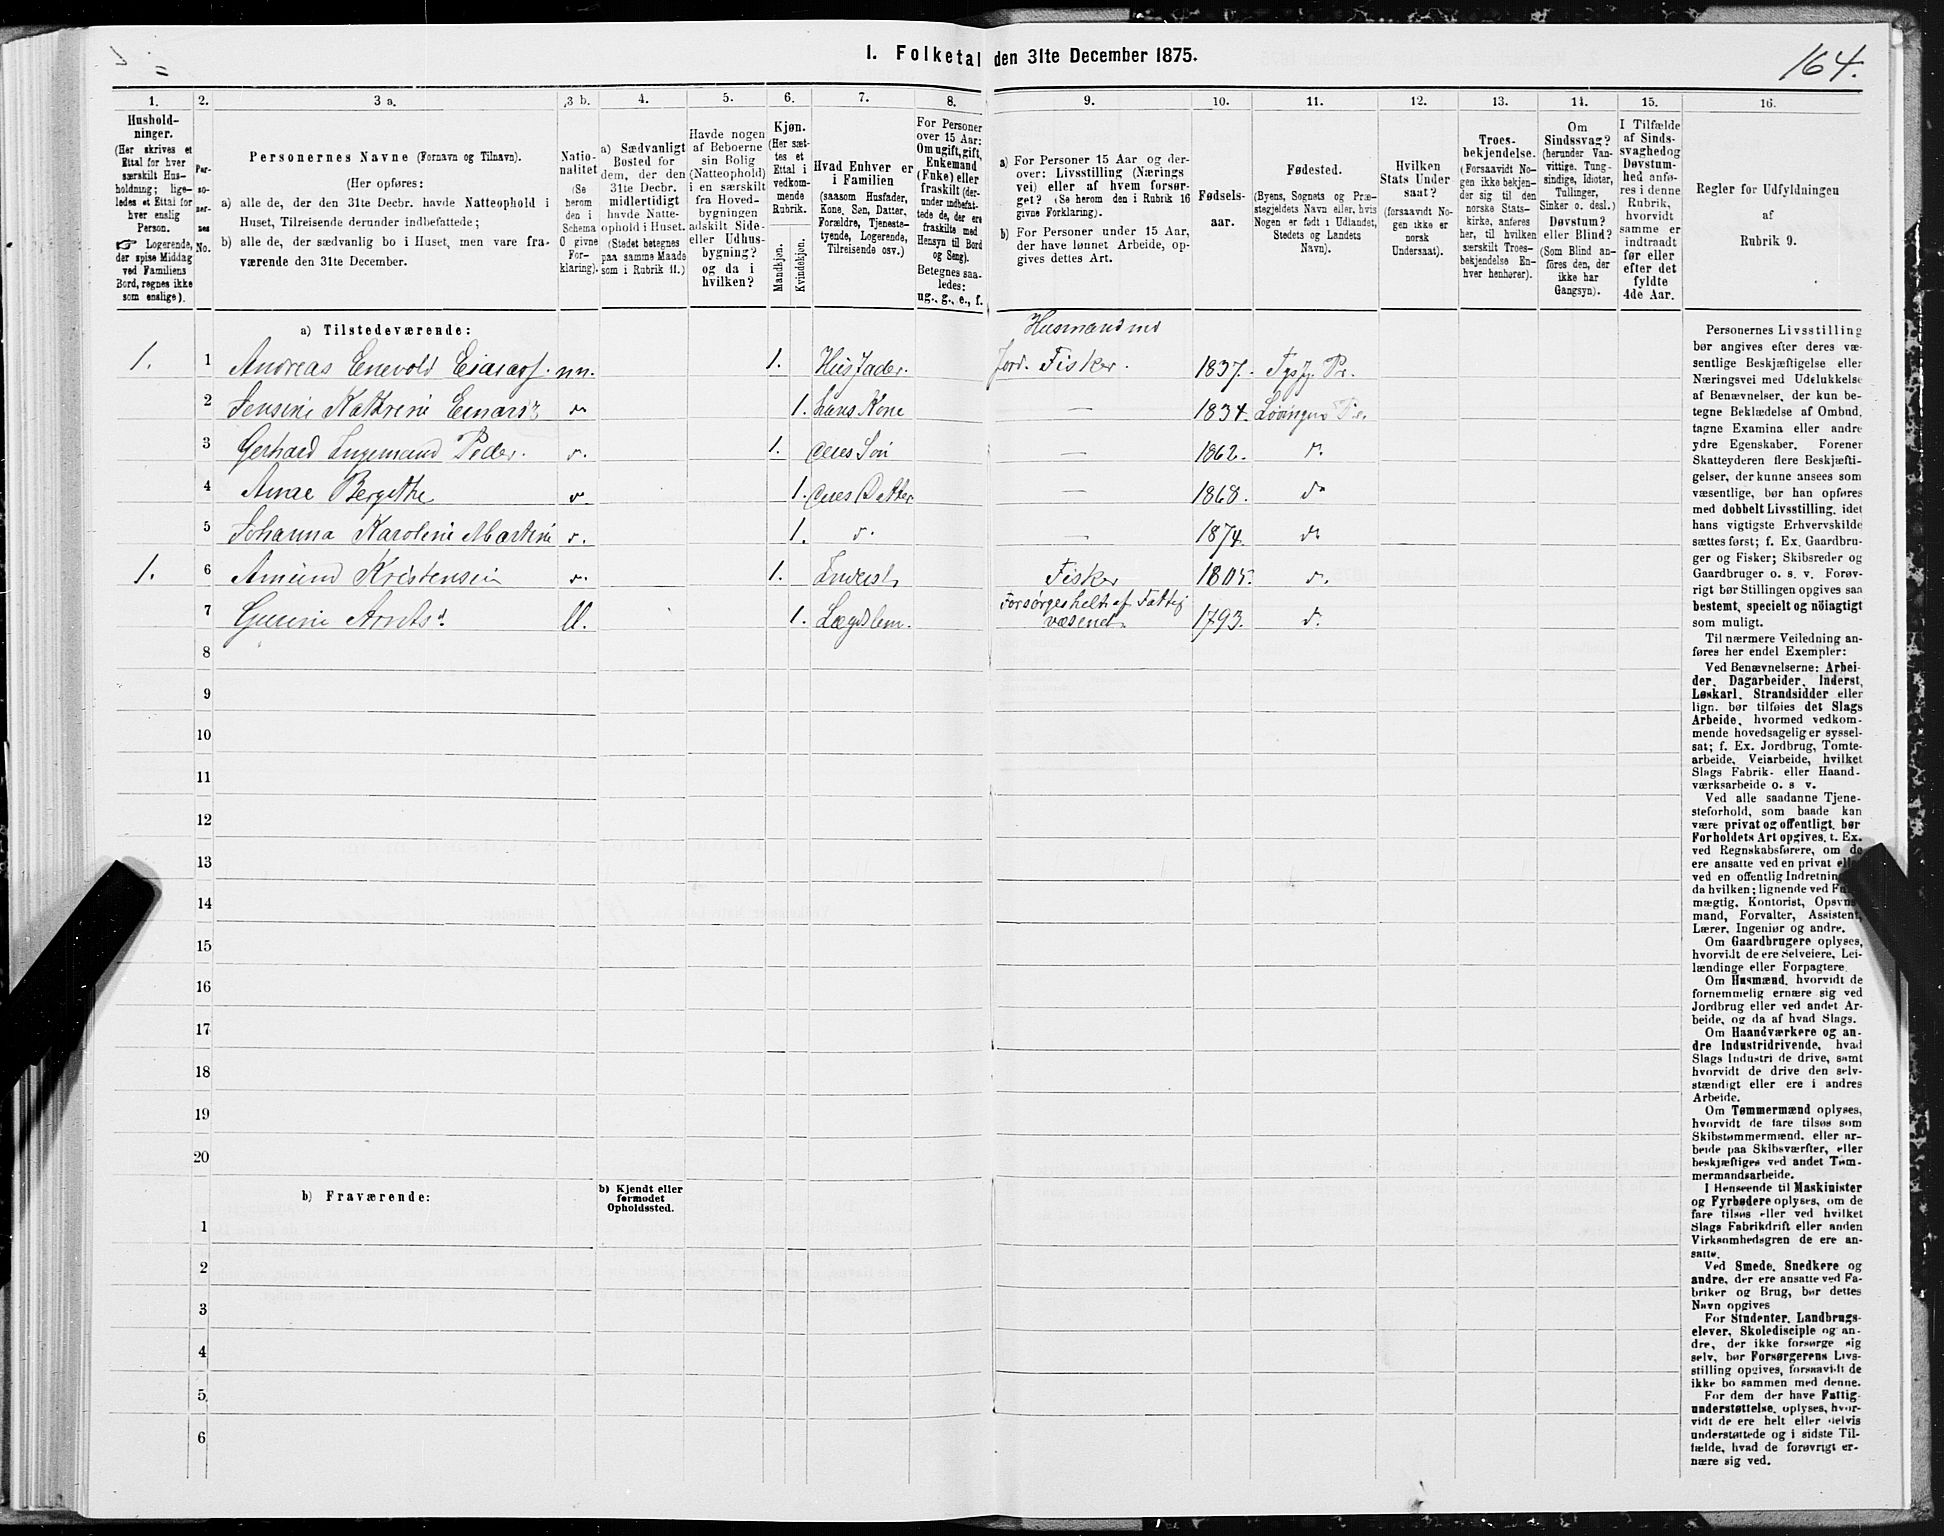 I. Folketal den 31te December 1875.
164.
1. 2. 3 a. 3 b. 4. 5. 6. 7. 8. 9. 10. 11. 12. 13. 14. 15. 16.
Hushold-
ninger.
(Her skrives et
Ettal for hver
særskilt Hus-
holdning; lige-
ledes et Ettal for
hver enslig
Person.
☞ Logerende,
der spise Middag
ved Familiens
Bord, regnes ikke
som enslige).
Per-
so-
ner-
nes
No.
Personernes Navne (Fornavn og Tilnavn).
(Her opføres:
a) alle de, der den 31te Decbr. havde Natteophold i
Huset, Tilreisende derunder indbefattede;
b) alle de, der sædvanlig bo i Huset, men vare fra-
værende den 31te December.
Natio-
nalitet
(Se
herom
den i
Schema
0 givne
For-
klaring).
a) Sædvanligt
Bosted for
dem, der den
31te Decbr.
midlertidigt
havde Natte-
ophold i Huset.
(Stedet betegnes
paa samme Maade
som i Rubrik 11.)
Havde nogen
af Beboerne
sin Bolig
(Natteophold)
i en særskilt
fra Hoved-
bygningen
adskilt Side-
eller Udhus-
bygning?
og da i
hvilken?
Kjøn.
(Her sæt-
tes et
Ettal i
vedkom-
mende
Rubrik.
Mandkjøn.
Kvindekjøn.
Hvad Enhver er
i Familien
(saasom Husfader,
Kone, Søn, Datter,
Forældre, Tjeneste-
tyende, Logerende,
Tilreisende osv.)
For Personer
over 15 Aar:
Om ugift, gift,
Enkemand
(Enke) eller
fraskilt (der-
under indbefat-
tede de, der ere
fraskilte med
Hensyn til Bord
og Seng).
Betegnes saa-
ledes:
ug., g., e., f.
a) For Personer 15 Aar og der-
over: Livsstilling (Nærings
vei) eller af hvem forsør-
get? (Se herom i Rubrik 16
givne Forklaring).
b) For Personer under 15 Aar,
der have lønnet Arbeide, op-
gives dettes Art.
Fødsels-
aar.
Fødested.
(Byens, Sognets og Præ-
stegjeldets Navn eller, hvis
Nogen er født i Udlandet,
Stedets og Landets
Navn).
Hvilken
Stats Under
saat?
(forsaavidt No-
gen ikke er
norsk
Undersaat).
Troes-
bekjendelse.
(Forsaavidt No-
gen ikke bekjen-
der sig til den
norske Stats-
kirke, anføres
her, til hvilken
særskilt Troes-
bekjendelse En-
hver henhører).
Om
Sindssvag?
(herunder Van-
vittige, Tung-
sindige, Idioter,
Tullinger,
Sinker o. desl.)
Døvstum?
eller Blind?
(Som Blind an-
føres den, der
ikke har
Gangsyn).
I Tilfælde
af Sinds-
svaghed og
Døvstum-
hed anfø-
res i denne
Rubrik,
hvorvidt
samme er
indtraadt
før eller
efter det
fyldte
4de Aar.
Regler for Udfyldningen
af
Rubrik 9.
a) Tilstedeværende:
Husmand md
1. 1 Andreas Enevold nn. 1. Husfader. Jord. Fisker. 1837. Tysfj. Pr.
2 Jensine Kathrine 1. hans Kone — 1834.
3 Gerhard Ingemand Peder. 1. deres Søn — 1862.
4 Anne Bergithe 1. deres Datter — 1868.
5 Johanna Karoline Martine 1. — 1874.
1. 6 Amund Kristensen 1. Inderst Fisker 1805.
7 1. Lægdslem. Forsørges helt af Fattig
væsenet. 1793.
8
9
10
11
12
13
14
15
16
17
18
19
20
b) Fraværende:
b) Kjendt eller
formodet
Opholdssted.
1
2
3
4
5
6
Personernes Livsstilling
bør angives efter deres væ-
sentlige Beskjæftigelse eller
Næringsvei med Udelukkelse
af Benævnelser, der kun be-
tegne Beklædelse af Ombud,
tagne Examina eller andre
ydre Egenskaber. Forener
Skatteyderen flere Beskjæfti-
gelser, der kunne ansees som
væsentlige, bør han opføres
med dobbelt Livsstilling, idet
hans vigtigste Erhvervskilde
sættes først; f. Ex. Gaardbru-
ger og Fisker; Skibsreder og
Gaardbruger o. s. v. Forøv-
rigt bør Stillingen opgives saa
bestemt, specielt og nöiagtigt
som muligt.
Til nærmere Veiledning an-
føres her endel Exempler:
Ved Benævnelserne: Arbei-
der, Dagarbeider, Inderst,
Løskarl, Strandsidder eller
lign. bør tilføies det Slags
Arbeide, hvormed vedkom-
mende hovedsagelig er syssel-
sat; f. Ex. Jordbrug, Tomte-
arbeide, Veiarbeide, hvilket
Slags Fabrik- eller Haand-
værksarbeide o. s v.
Ved alle saadanne Tjene-
steforhold, som baade kan
være privat og offentligt, bør
Forholdets Art opgives, t. Ex.
ved Regnskabsførere, om de
ere ansatte ved en privat eller
ved en offentlig Indretning
da hvilken; lignende ved
mægtig, Kontorist, Opsyns-
mand, Forvalter, Assistent,
Lærer, Ingeniør og andre.
Om Gaardbrugere oplyses,
hvorvidt de ere Selveiere, Lei-
lændinge eller Forpagtere.
Om Husmænd, hvorvidt de
fornemmelig ernære sig ved
Jordbrug eller ved andet Ar-
beide, og da af hvad Slags.
Om Haandværkere og an-
dre Industridrivende, hvad
Slags Industri de drive, samt
hvorvidt de drive den selv-
stændigt eller ere i andres
Arbeide.
Om Tømmermænd oplyses,
hvorvidt de fare tilsøs som
Skibstømmermænd, eller ar-
beide paa Skibsværfter, eller
beskjæftiges ved andet Tøm-
mermandsarbeide.
I Henseende til Maskinister
og Fyrbødere oplyses, om de
fare tilsøs eller ved hvilket
Slags Fabrikdrift eller anden
Virksomhedsgren de ere an-
satte.
Ved Smede, Snedkere og
andre, der ere ansatte ved Fa-
briker og Brug, bør dettes
Navn opgives
For Studenter, Landbrugs-
elever, Skoledisciple og an-
dre, der ikke forsørge sig
selv, bør Forsørgerens Livs-
stilling opgives, forsaavidt de
ikke bo sammen med denne.
For dem der have Fattig-
understøttelse, oplyses, hvor-
vidt de ere helt eller delvis
understøttede og i sidste Til-
fælde, hvad de forøvrigt er-
nære sig ved.